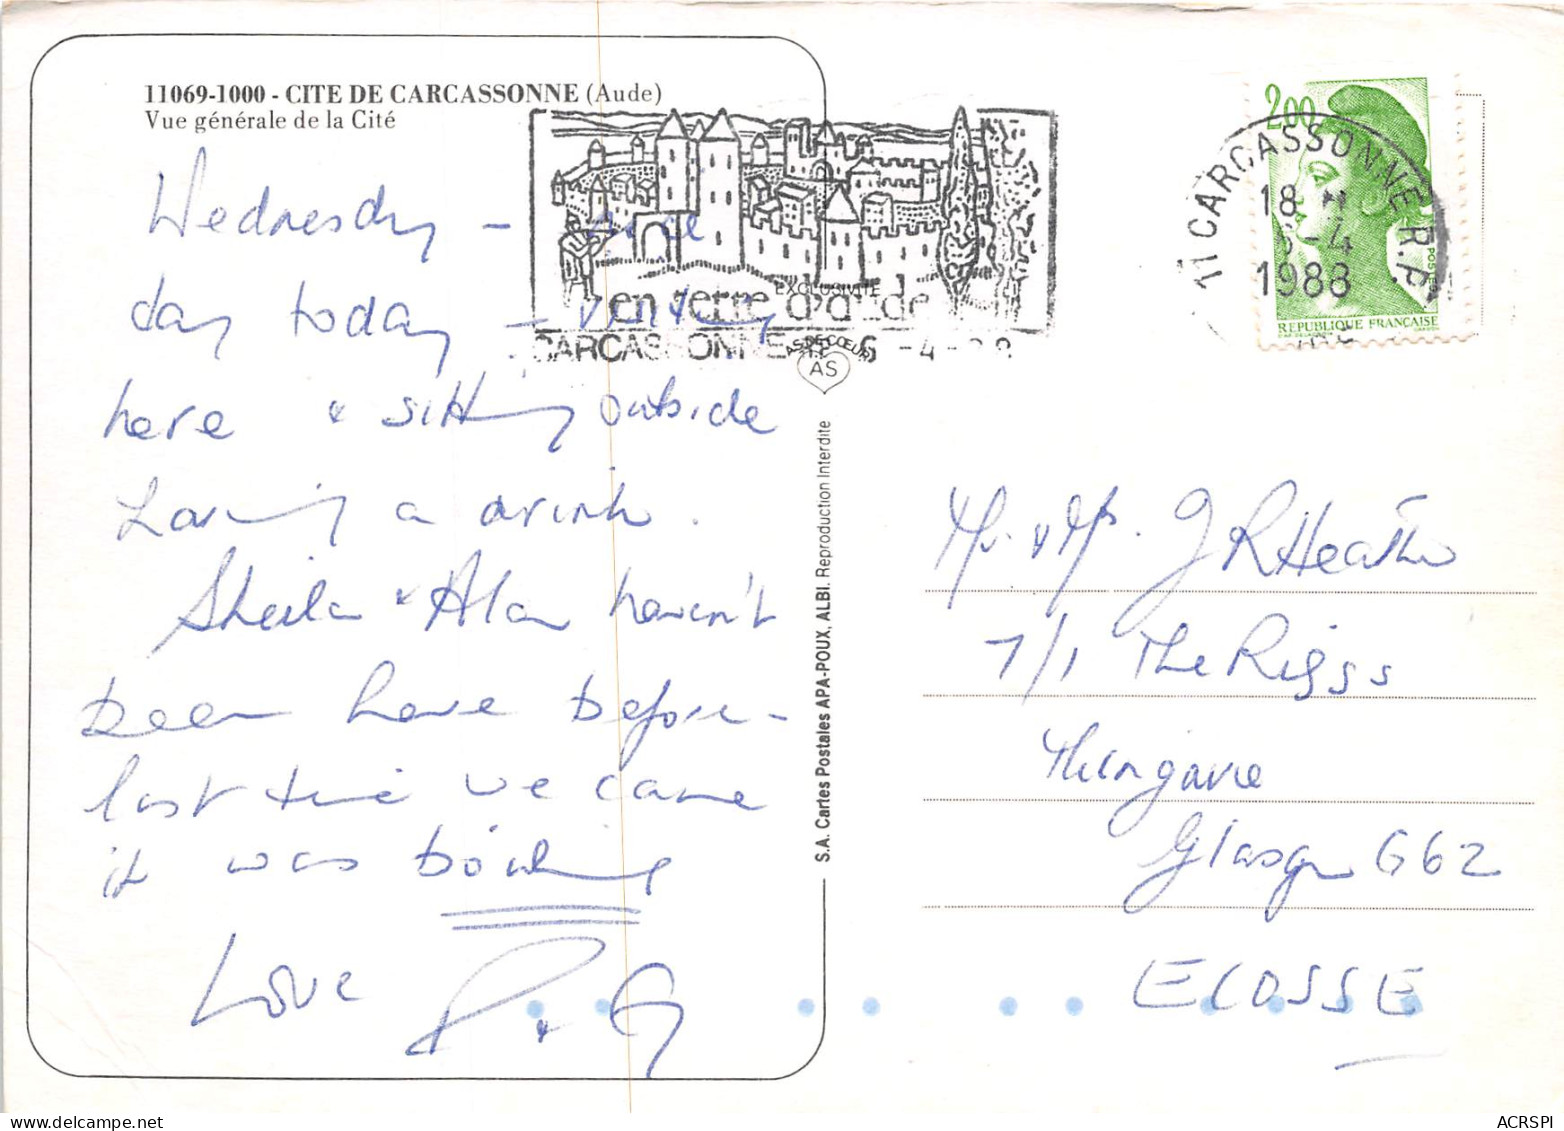 11069-1000 - CITE DE CARCASSONNE (Aude)
Vue générale de la Cité
Wednesday - nice
day today -
here & sitting outside
having a drink.
Sheila & Alan haven't
been here before -
last time we came
it was boiling
Love
P & G
en terre d'aude
CARCASSONNE 6 -4 -88
EXCLUSIVITE
AS DE CŒUR
AS
S.A. Cartes Postales APA-POUX, ALBI. Reproduction Interdite
2,00
REPUBLIQUE FRANÇAISE
POSTES
11 CARCASSONNE R.P.
18 H
6-4
1988
Mr. & Mrs. J R Heath
7/1 The Riggs
Milngavie
Glasgow G62
ECOSSE
ACRSPI